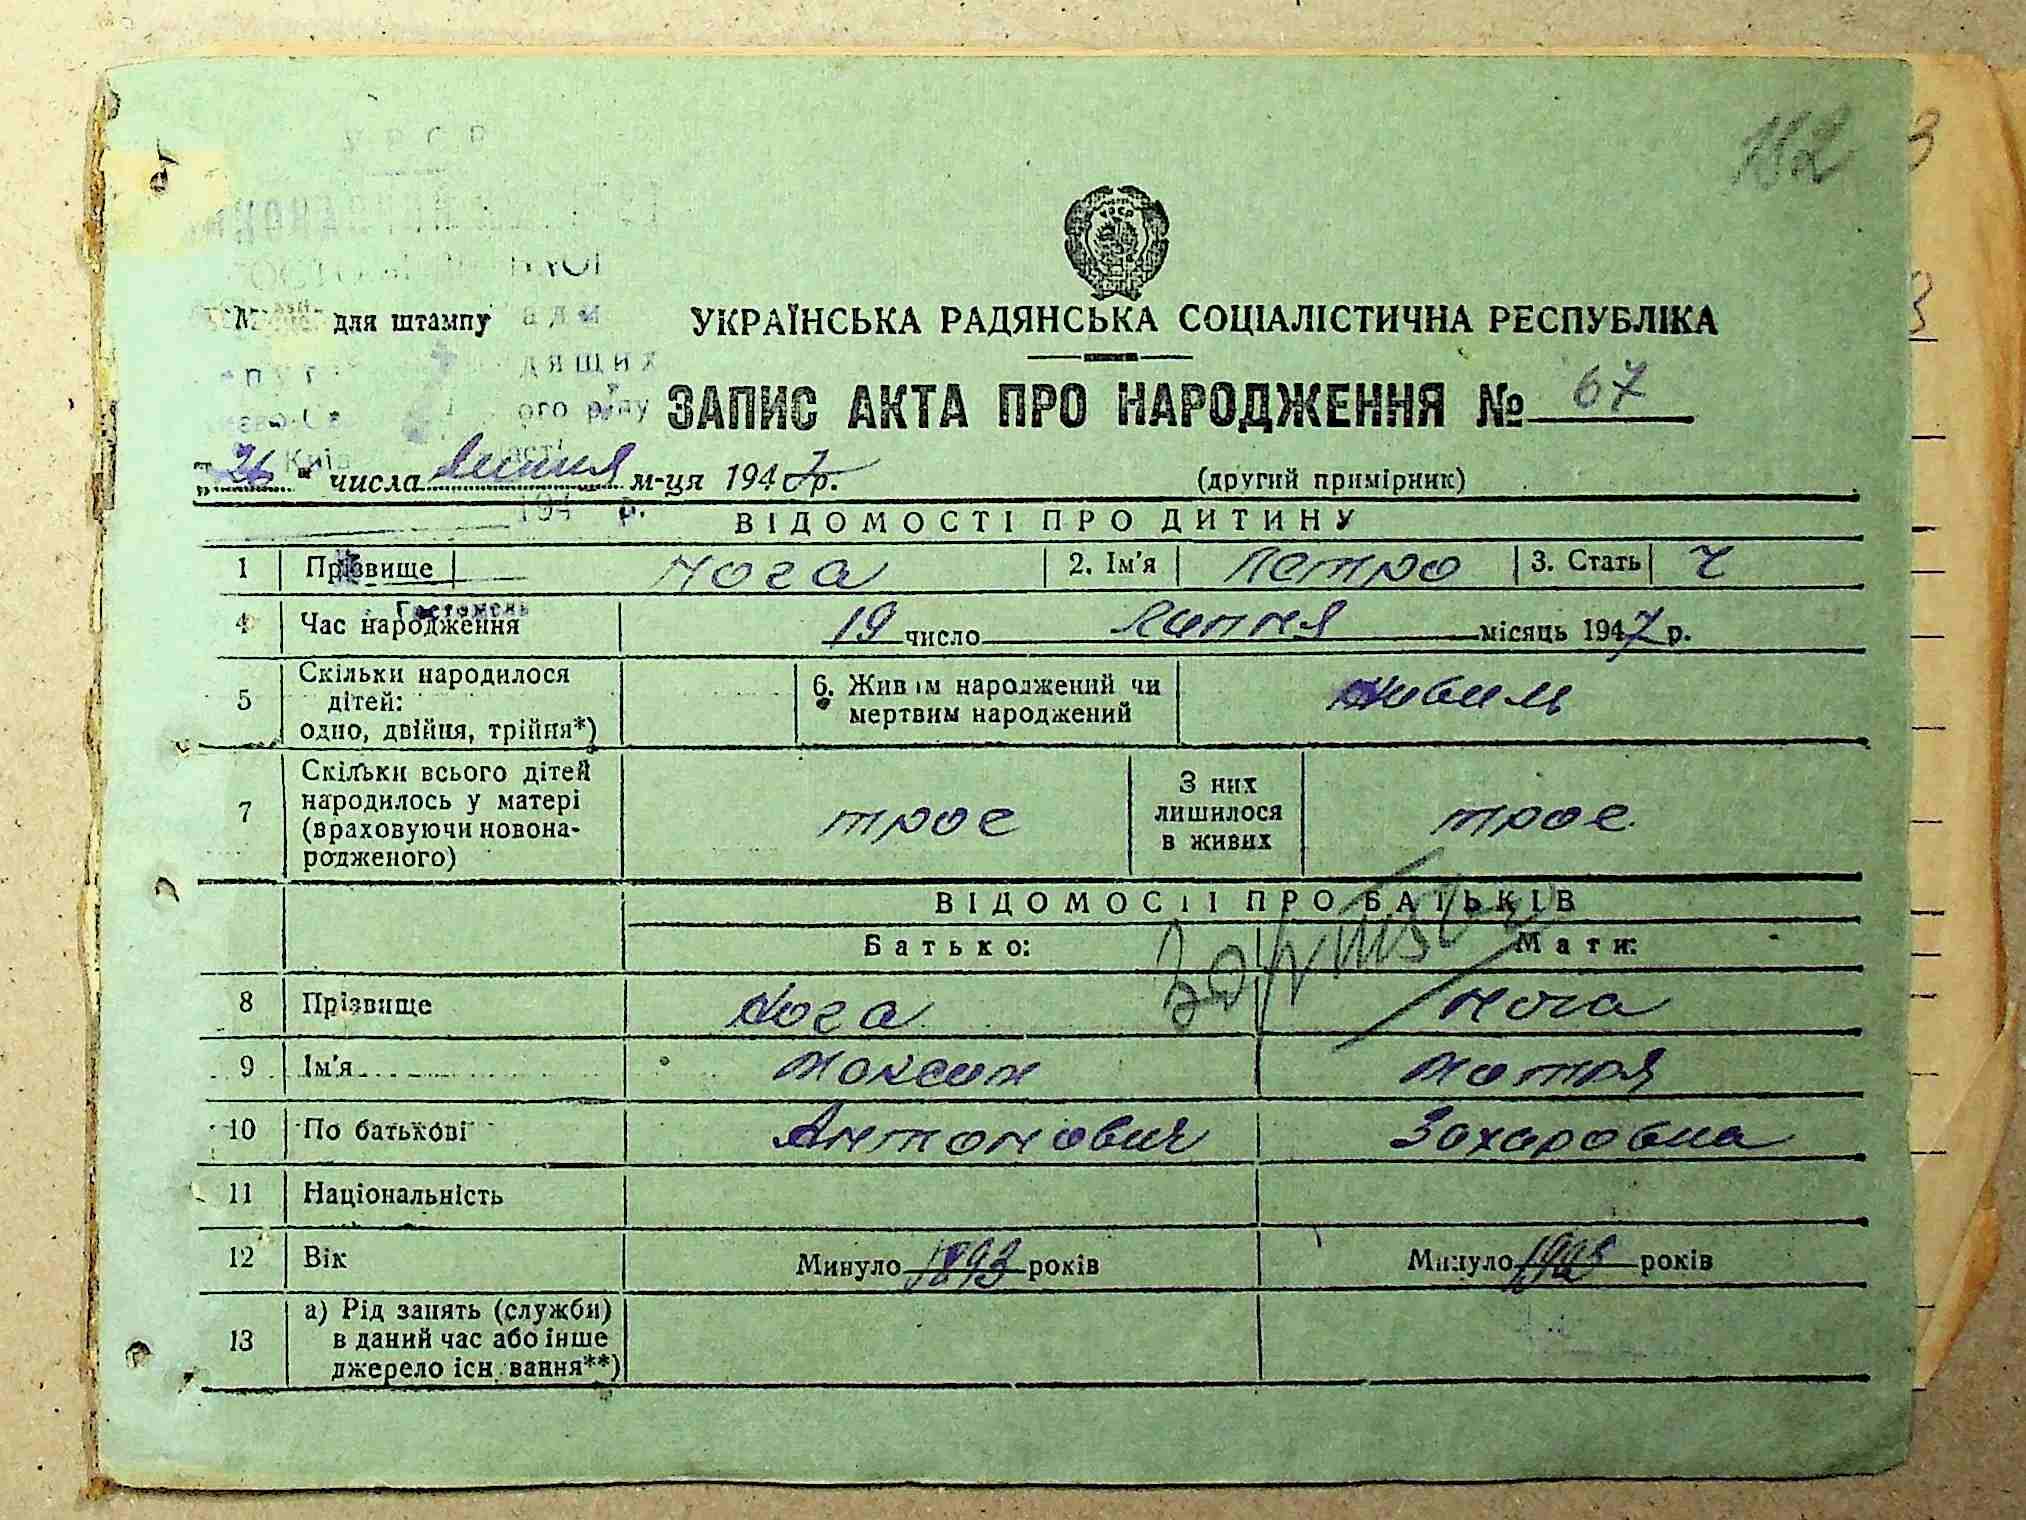 162
У Р С Р
Місце для штампу
УКРАЇНСЬКА РАДЯНСЬКА СОЦІАЛІСТИЧНА РЕСПУБЛІКА
ЗАПИС АКТА ПРО НАРОДЖЕННЯ № 67
„26“ числа липня м-ця 1947 р. (другий примірник)
194 р.
ВІДОМОСТІ ПРО ДИТИНУ
1 Прізвище Нога 2. Ім'я Петро 3. Стать Ч
Гостомель
4 Час народження 19 число липня місяць 1947 р.
5 Скільки народилося
дітей:
одно, двійня, трійня*)
6. Живим народжений чи
мертвим народжений живим
7 Скільки всього дітей
народилось у матері
(враховуючи новона-
родженого) троє
З них
лишилося
в живих троє
ВІДОМОСТІ ПРО БАТЬКІВ
Батько: Мати:
8 Прізвище Нога Нога
9 Ім'я Максим Мотря
10 По батькові Антонович Захаровна
11 Національність
12 Вік Минуло 1893 років Минуло років
13 а) Рід занять (служби)
в даний час або інше
джерело існування**)